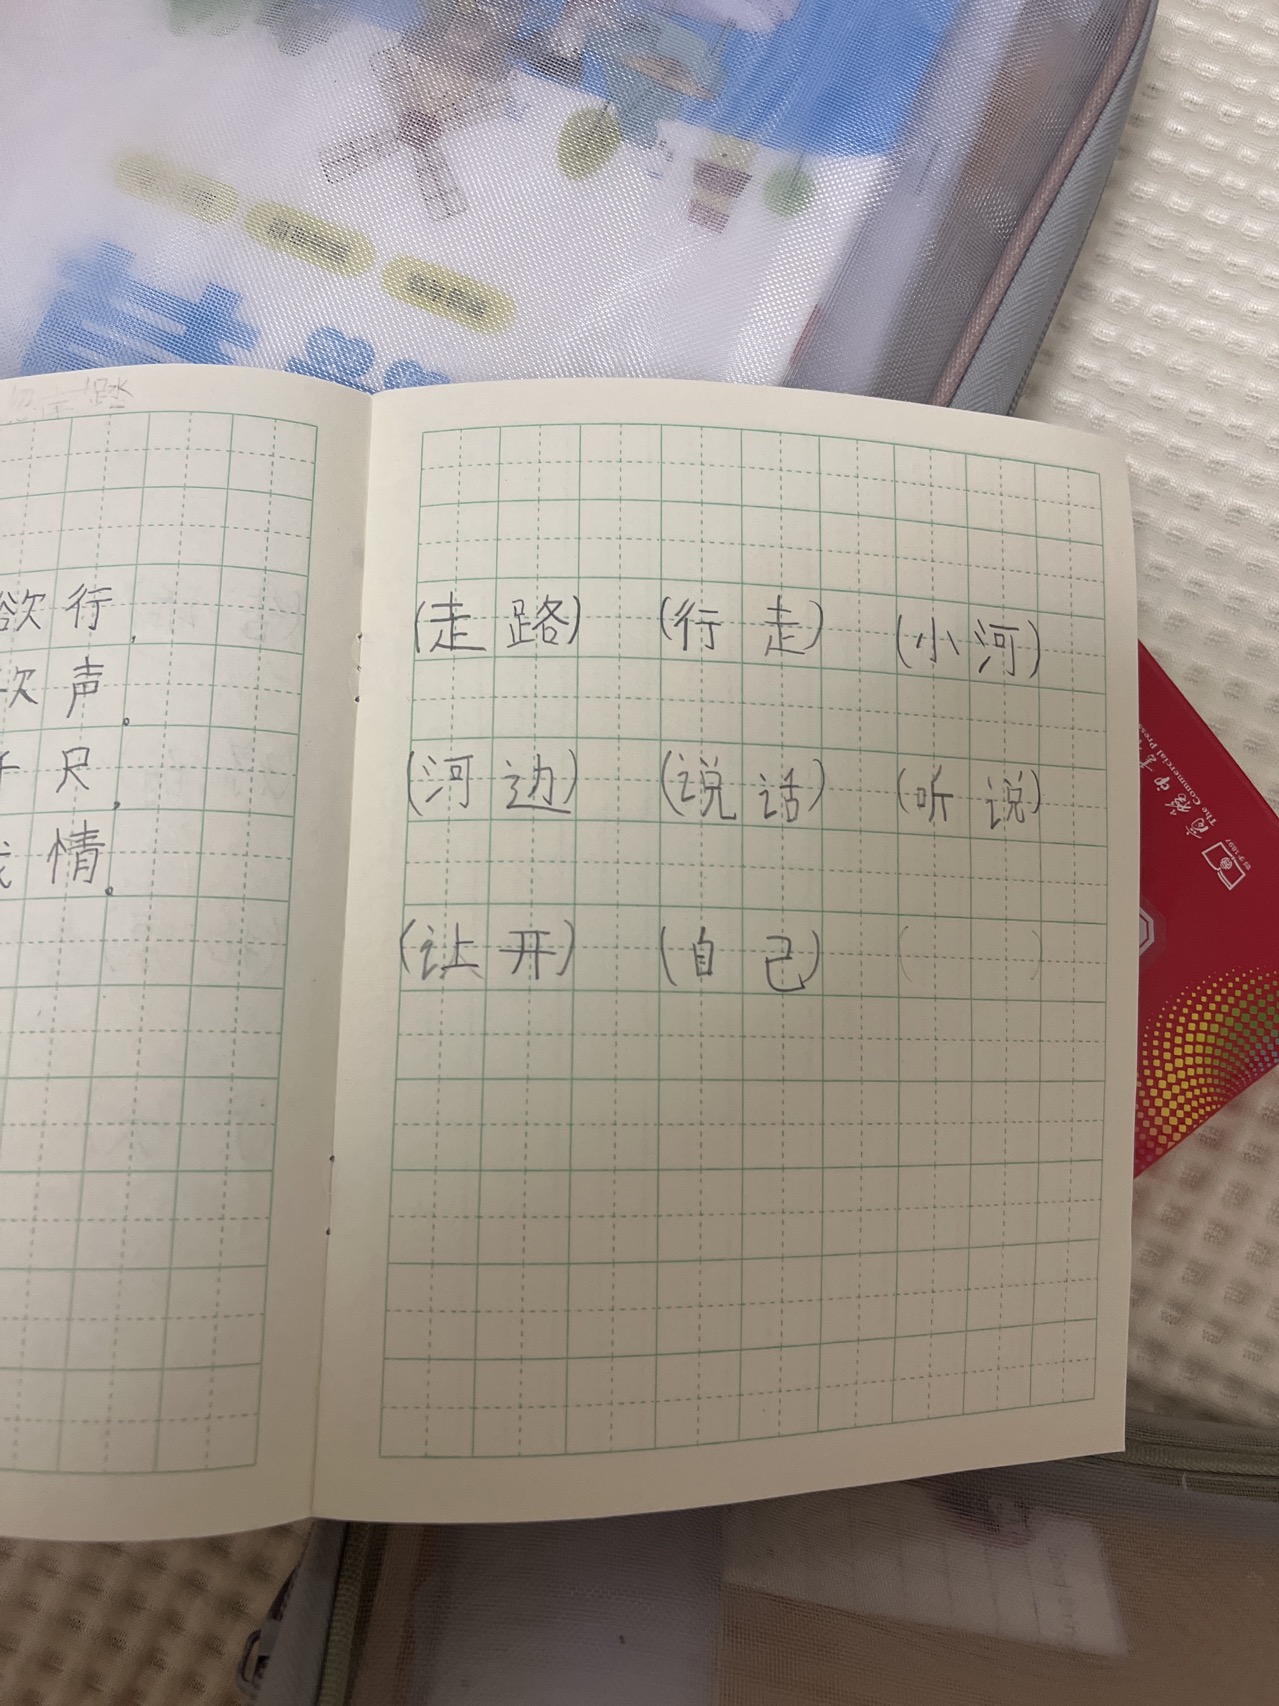 欲行，
欢声。
千尺，
我情。
(走路) (行走) (小河)
(河边) (说话) (听说)
(让开) (自己) ( )
商务印书馆
The Commercial Press